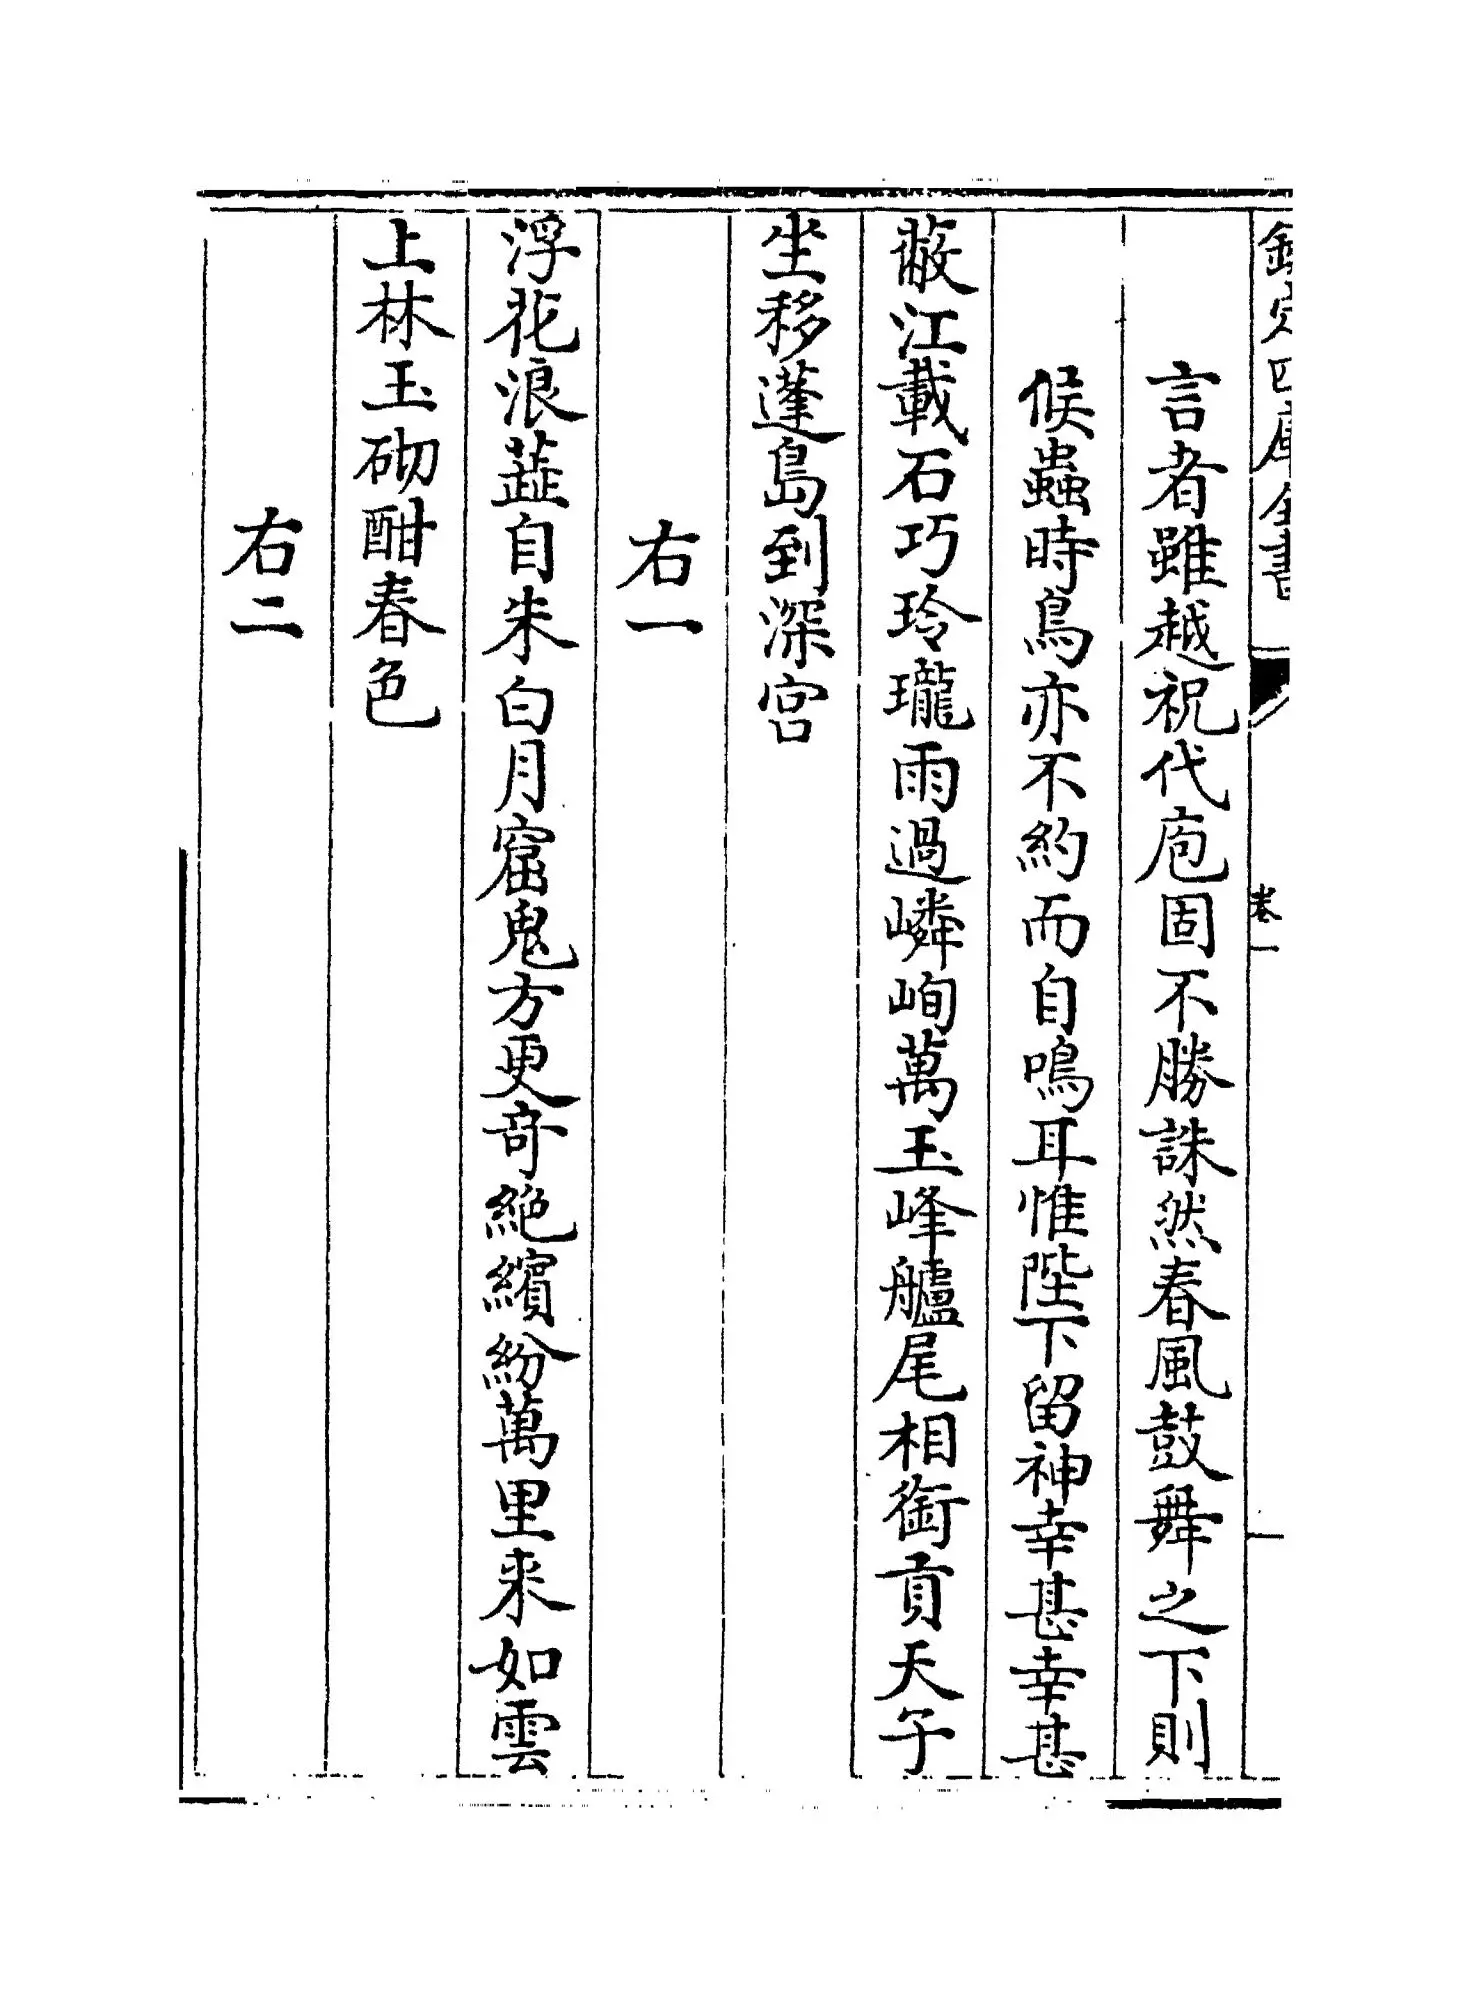 欽定四庫全書
卷一
言者雖越祝代庖固不勝誅然春風鼓舞之下則
候蟲時鳥亦不約而自鳴耳惟陛下留神幸甚幸甚
蔽江載石巧玲瓏雨過嶙峋萬玉峰艫尾相銜貢天子
坐移蓬島到深宮
右一
浮花浪蘂自朱白月窟鬼方更奇絶繽紛萬里来如雲
上林玉砌酣春色
右二